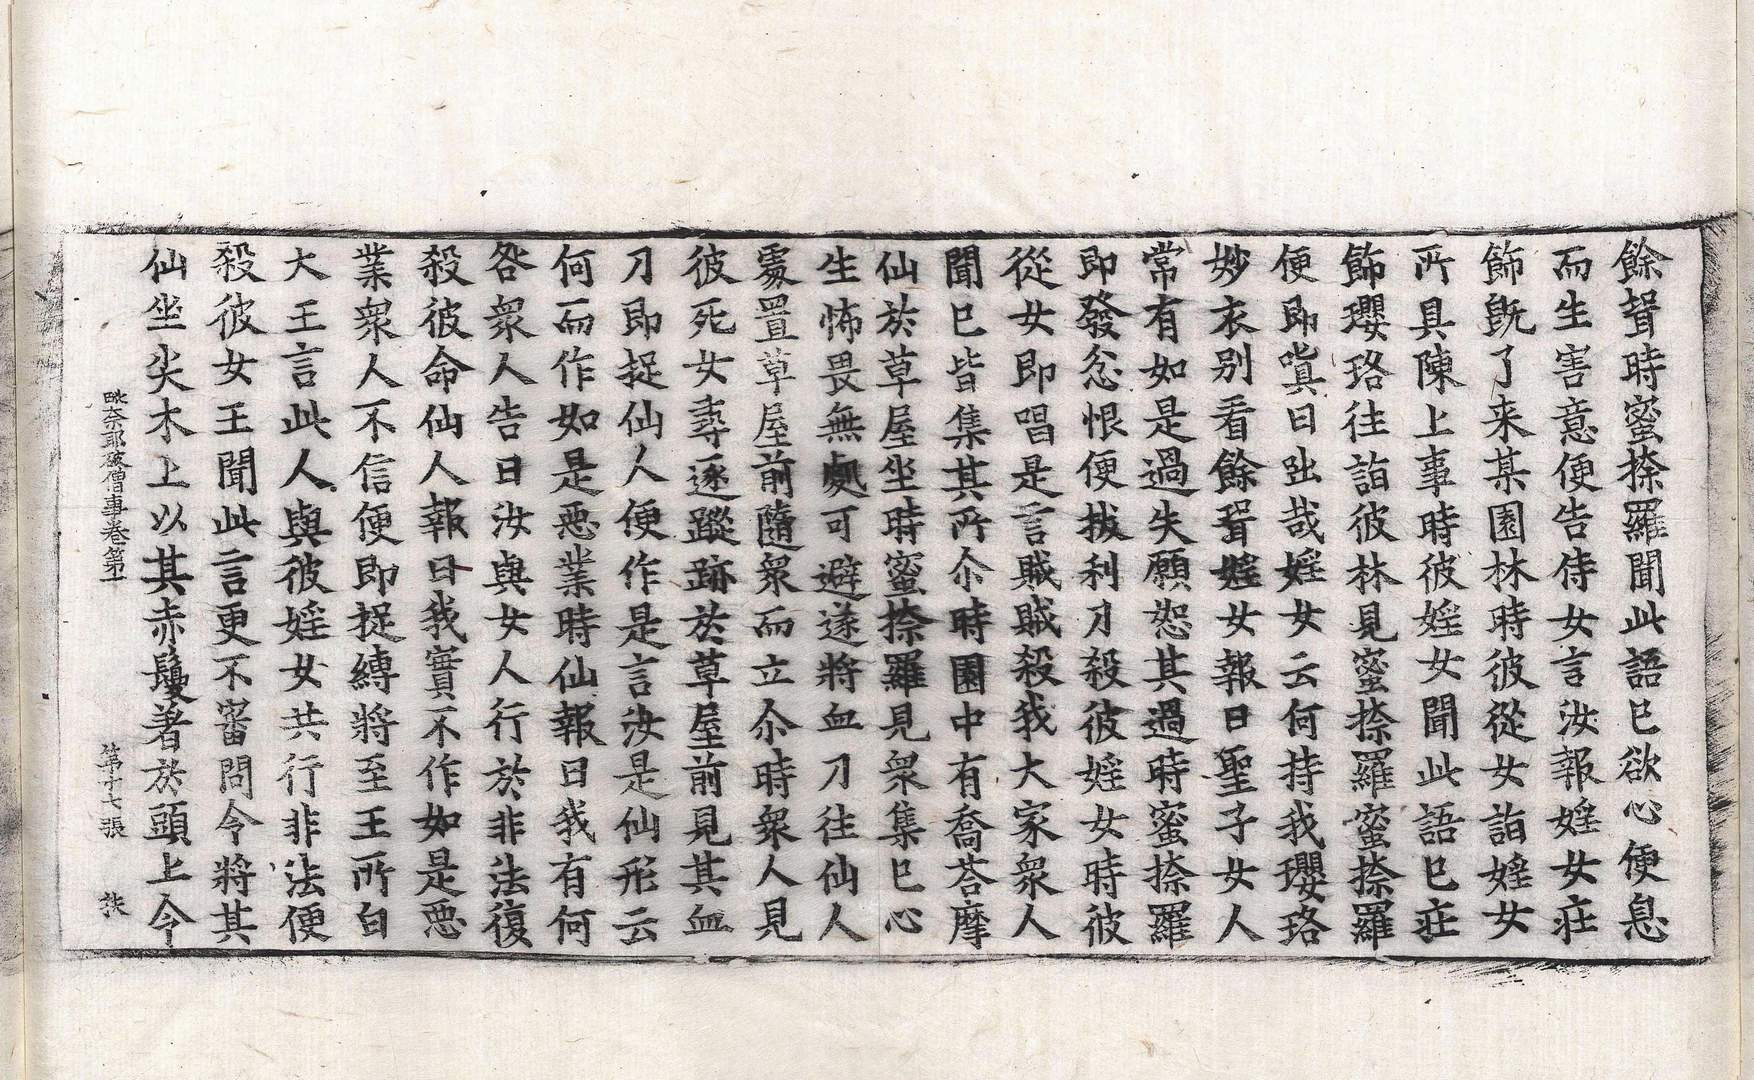 餘聟時蜜捺羅聞此語已欲心便息
而生害意便告侍女言汝報婬女莊
飾旣了来某園林時彼從女詣婬女
所具陳上事時彼婬女聞此語已莊
飾瓔珞往詣彼林見蜜捺羅蜜捺羅
便即嗔曰咄哉婬女云何持我瓔珞
妙衣別看餘聟婬女報曰聖子女人
常有如是過失願恕其過時蜜捺羅
即發忿恨便拔利刀殺彼婬女時彼
從女即唱是言賊賊殺我大家衆人
聞已皆集其所尒時園中有喬荅摩
仙於草屋坐時蜜捺羅見衆集已心
生怖畏無處可避遂將血刀往仙人
處置草屋前隨衆而立尒時衆人見
彼死女尋逐蹤跡於草屋前見其血
刀即捉仙人便作是言汝是仙形云
何而作如是惡業時仙報曰我有何
咎衆人告曰汝與女人行於非法復
殺彼命仙人報曰我實不作如是惡
業衆人不信便即捉縛將至王所白
大王言此人與彼婬女共行非法便
殺彼女王聞此言更不審問令將其
仙坐尖木上以其赤鬘著於頭上令
毗奈耶破僧事卷第一 第十七張